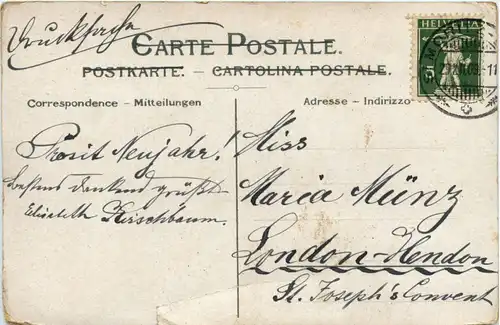 Drucksache
CARTE POSTALE.
POSTKARTE. – CARTOLINA POSTALE.
HELVETIA
5
Correspondence – Mitteilungen
Adresse – Indirizzo
Prosit Neujahr!
bestens dankend grüßt
Elisabeth Kirschbaum.
Miss
Maria Münz
London-Hendon
St. Joseph's Convent